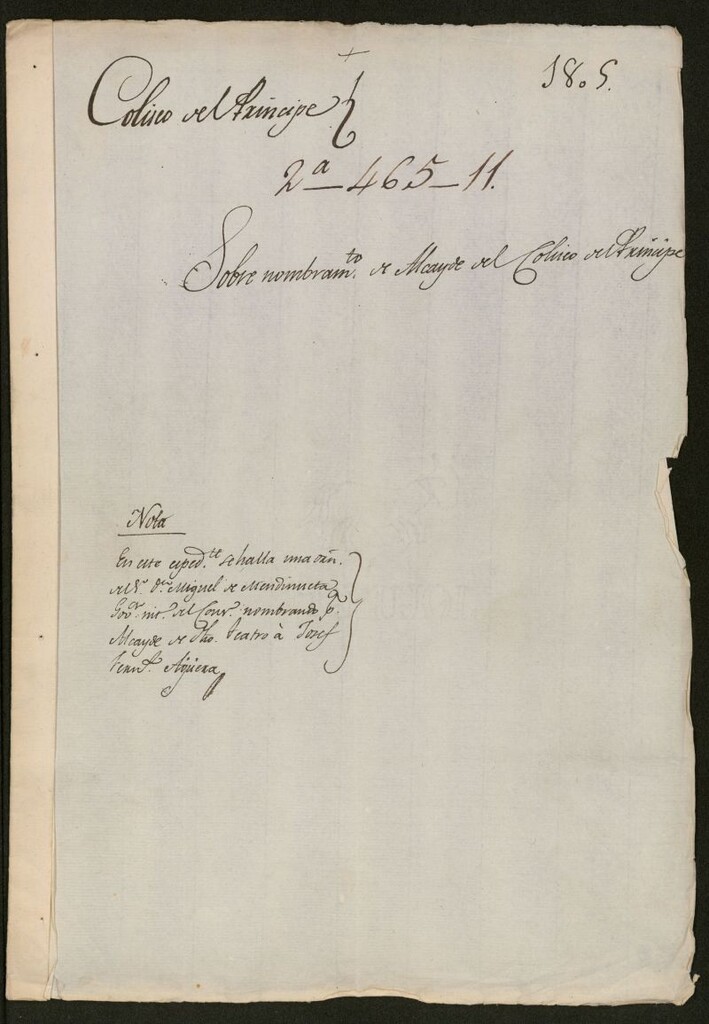 +
Coliseo del Principe
1805.
2ª—465—11.
Sobre nombramto. de Alcayde del Coliseo del Principe
Nota
En este expedte. se halla una orn.
del Sr. Dn. Miguel de Mendinueta
Govor. intº. del Consº. nombrando pr.
Alcayde de dho. teatro à Josef
Agüera